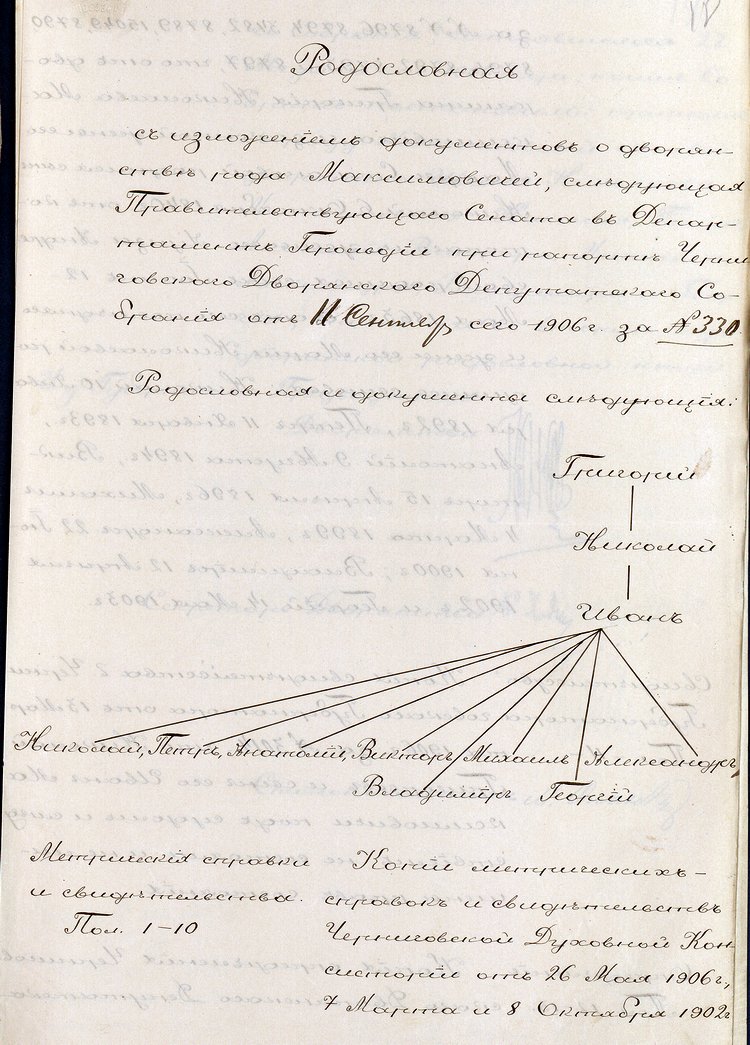 Родословная
съ изложеніемъ документовъ о дворян-
ствѣ рода Максимовичей, слѣдующая
Правительствующаго Сената въ Депар-
таментъ Герольдіи при рапортѣ Черни-
говскаго Дворянскаго Депутатскаго Со-
бранія отъ 11 Сентябр сего 1906 г. за № 330.
Родословная и документы слѣдующія:
Григорій
Николай
Иванъ
Николай, Петръ, Анатолій, Викторъ, Михаилъ, Александръ,
Владиміръ Георгій
Метрическія справки
и свидѣтельства.
Пол. 1-10
Копіи метрическихъ -
справокъ и свидѣтельствъ
Черниговской Духовной Кон-
систоріи отъ 26 Мая 1906 г.,
7 Марта и 8 Октября 1902 г